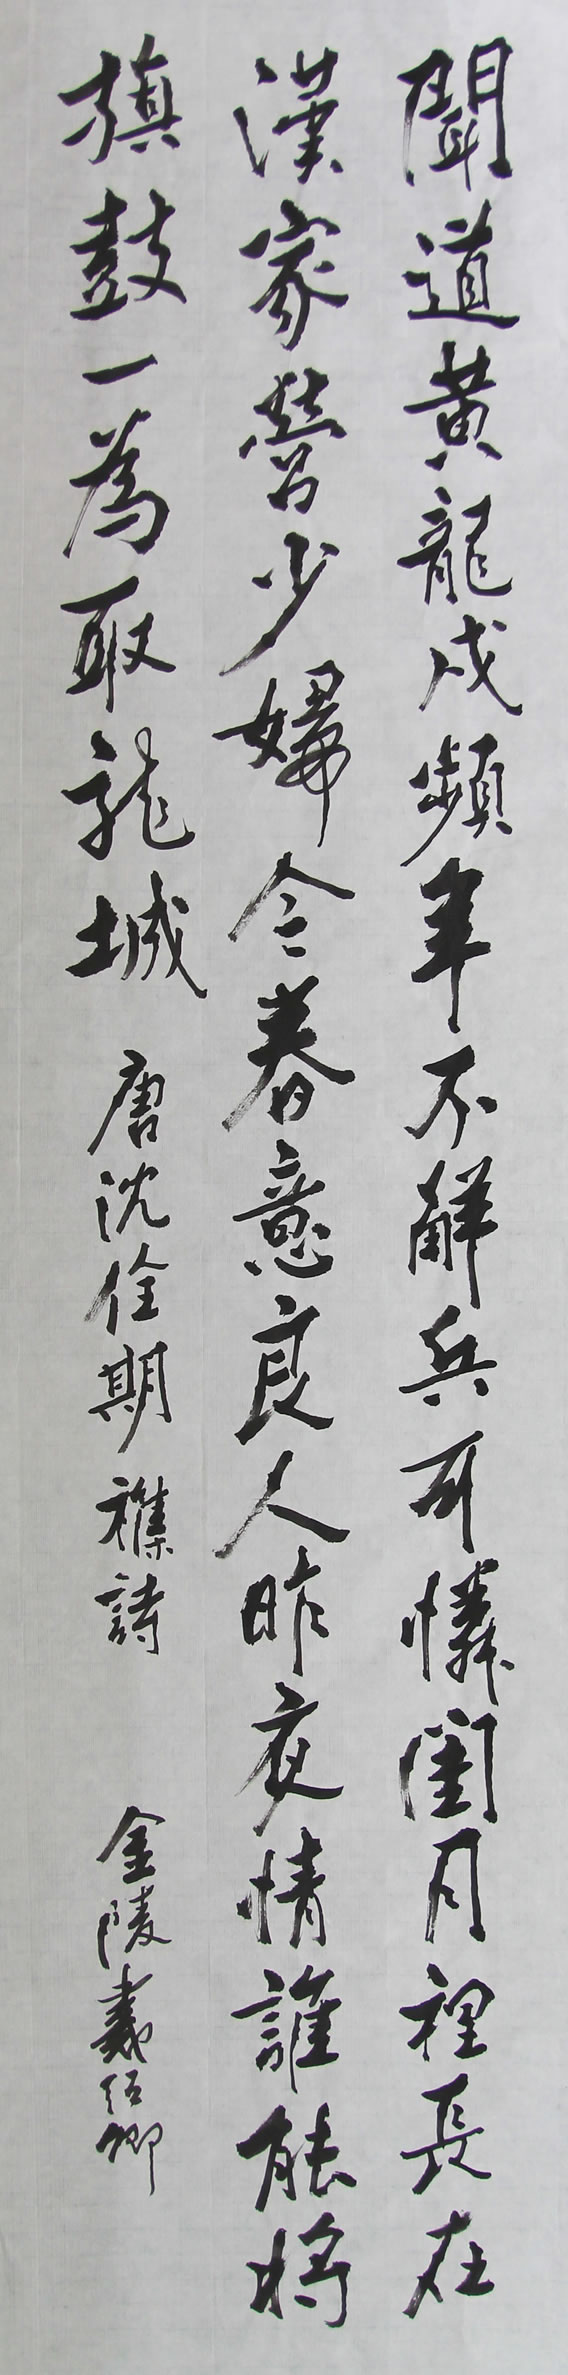 聞道黃龍戍頻年不解兵可憐閨月裡長在
漢家營少婦今春意良人昨夜情誰能將
旗鼓一為取龍城
唐沈佺期雜詩
金陵戴紹卿